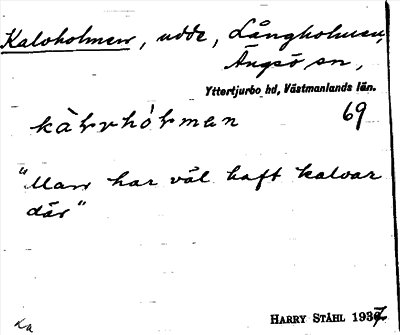 Kalvholmen, udde, Långholmen,
Ängsö sn,
Yttertjurbo hd, Västmanlands län.
69
"Man har väl haft kalvar
där"
HARRY STÅHL 1937